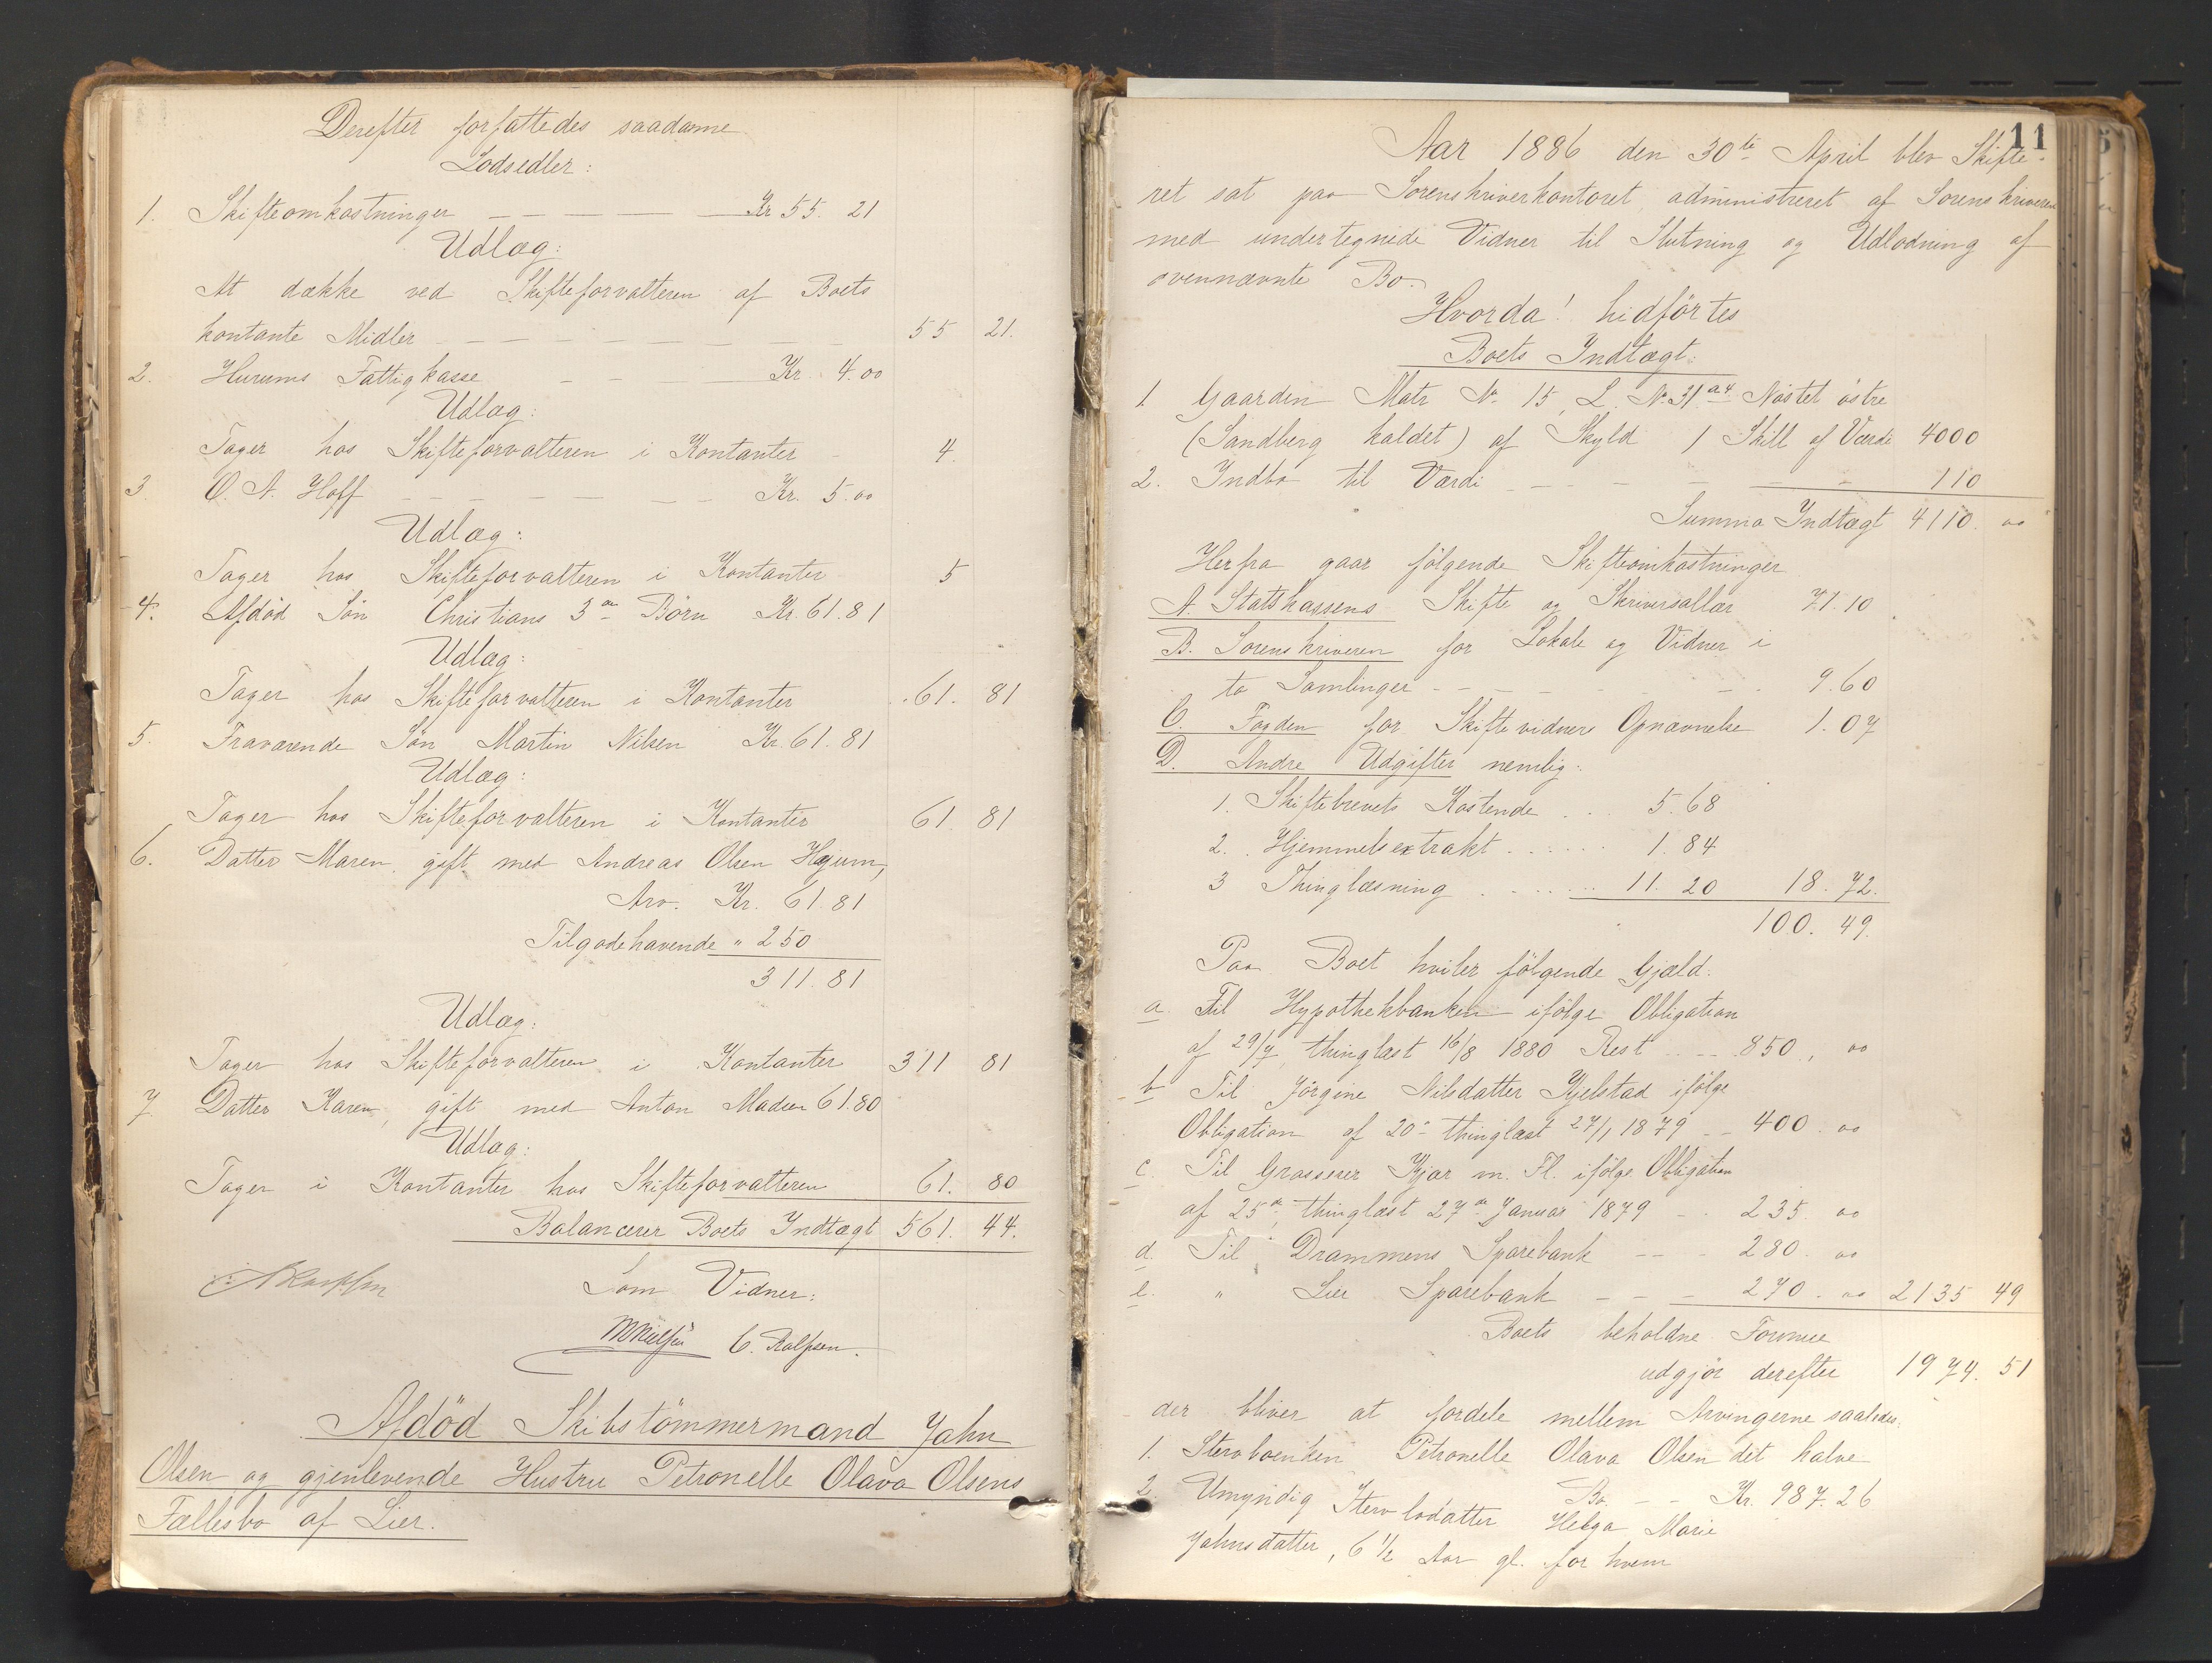 Derefter forfattedes saadanne
Lodsedler:
1. Skifteomkostninger — — — — Kr 55. 21
Udlæg:
At dække ved Skifteforvalteren af Boets
kontante Midler — — — — — — — — 55 21.
2. Hurums Fattigkasse — — — Kr. 4.00
Udlæg:
Tager hos Skifteforvalteren i Kontanter - 4.
3. O. A. Hoff — — — — — — Kr. 5.00
Udlæg:
Tager hos Skifteforvalteren i Kontanter 5
4. Afdöd Sön Christians 3de Børn Kr. 61.81
Udlæg:
Tager hos Skifteforvalteren i Kontanter 61. 81
5. Fraværende Sön Martin Nilsen Kr. 61.81
Udlæg:
Tager hos Skifteforvalteren i Kontanter 61. 81
6. Datter Maren, gift med Andreas Olsen Hajum,
Arv. Kr. 61.81
Tilgodehavende " 250
311.81
Udlæg:
Tager hos Skifteforvalteren i Kontanter 311 81
7. Datter Karen, gift med Anton Madsen 61.80
Udlæg:
Tager i Kontanter hos Skifteforvalteren 61. 80
Balancerer Boets Indtægt 561. 44.
Som Vidner:
C. Rolfsen.
Afdöd Skibstömmermand John
Olsen og gjenlevende Hustru Petronelle Olava Olsens
Fællesbo af Lier.
11
Aar 1886 den 30te April blev Skifte-
ret sat paa Sorenskriverkontoret administreret af Sorenskriveren
med undertegnede Vidner til Slutning og Udlodning af
ovennævnte Bo.
Hvorda! hidförtes
Boets Indtægt:
1. Gaarden Matr No 15, L. No 31 a4 Nöstet östre
(Sandberg kaldet) af Skyld 1 Skill af Værdi 4000
2. Indbo til Værdi — — — — — 110
Summa Indtægt 4110. 00
Herfra gaar fölgende Skifteomkostninger
A. Statskassens Skifte og Skriversallær 71.10
B. Sorenskriveren for Lokale og Vidner i
to Samlinger — — — — — 9.60
C. Fogden for Skiftevidners Opnævnelse 1.07
D. Andre Udgifter nemlig:
1. Skiftebrevets Kostende . . 5.68
2. Hjemmelsextrakt . . . . . . 1.84
3 Thinglæsning . . . . . . 11.20 18.72.
100. 49.
Paa Boet hviler fölgende Gjæld:
a. Til Hypothekbanken ifölge Obligation
af 29/7, thinglæst 16/8 1880 Rest — 850, 00
b. Til Jörgine Nilsdatter Kjelstad ifölge
Obligation af 20de thinglæst 27/1 1879 — 400. 00
c. Til Grosserer Kjær m. Fl. ifölge Obligation
af 25de, thinglæst 27de Januar 1879 — 235. 00
d. Til Drammens Sparebank — — 280. 00
e. " Lier Sparebank — — — 270. 00 2135 49
Boets beholdne Formue
udgjör derefter 1974. 51
der bliver at fordele mellem Arvingerne saaledes:
1. Stervboenken Petronelle Olava Olsen det halve
Bo. — — Kr. 987.26
2. Umyndig Stervbodatter Helga Marie
Johnsdatter, 6 1/2 Aar gl. for hvem